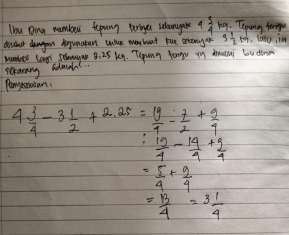 Ibu Dina membeli tepung terigu sebanyak 4 3/4 kg. Tepung terigu
tersebut digunakan untuk membuat kue sebanyak 3 1/2 kg. lalu, ibu
membeli lagi sebanyak 2.25 kg. Tepung terigu yg dimiliki bu dina
sekarang adalah...
Penyelesaian.
4 3/4 - 3 1/2 + 2.25 = 19/4 - 7/2 + 9/4
= 19/4 - 14/4 + 9/4
= 5/4 + 9/4
= 13/4 = 3 1/4